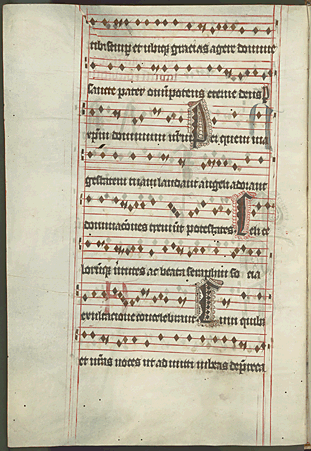 tibi semp et ubiq gracias agere domine
sancte pater omipotens eterne deus P
xpm dominum nrm Per quem ma
gestatem tuam laudant angeli adorant
dominaciones tremunt potestates Celi ce
lorumq virtutes ac beata seraphin so cia
exultacione concelebrant Cum quib
et nras voces ut admitti iubeas depreca